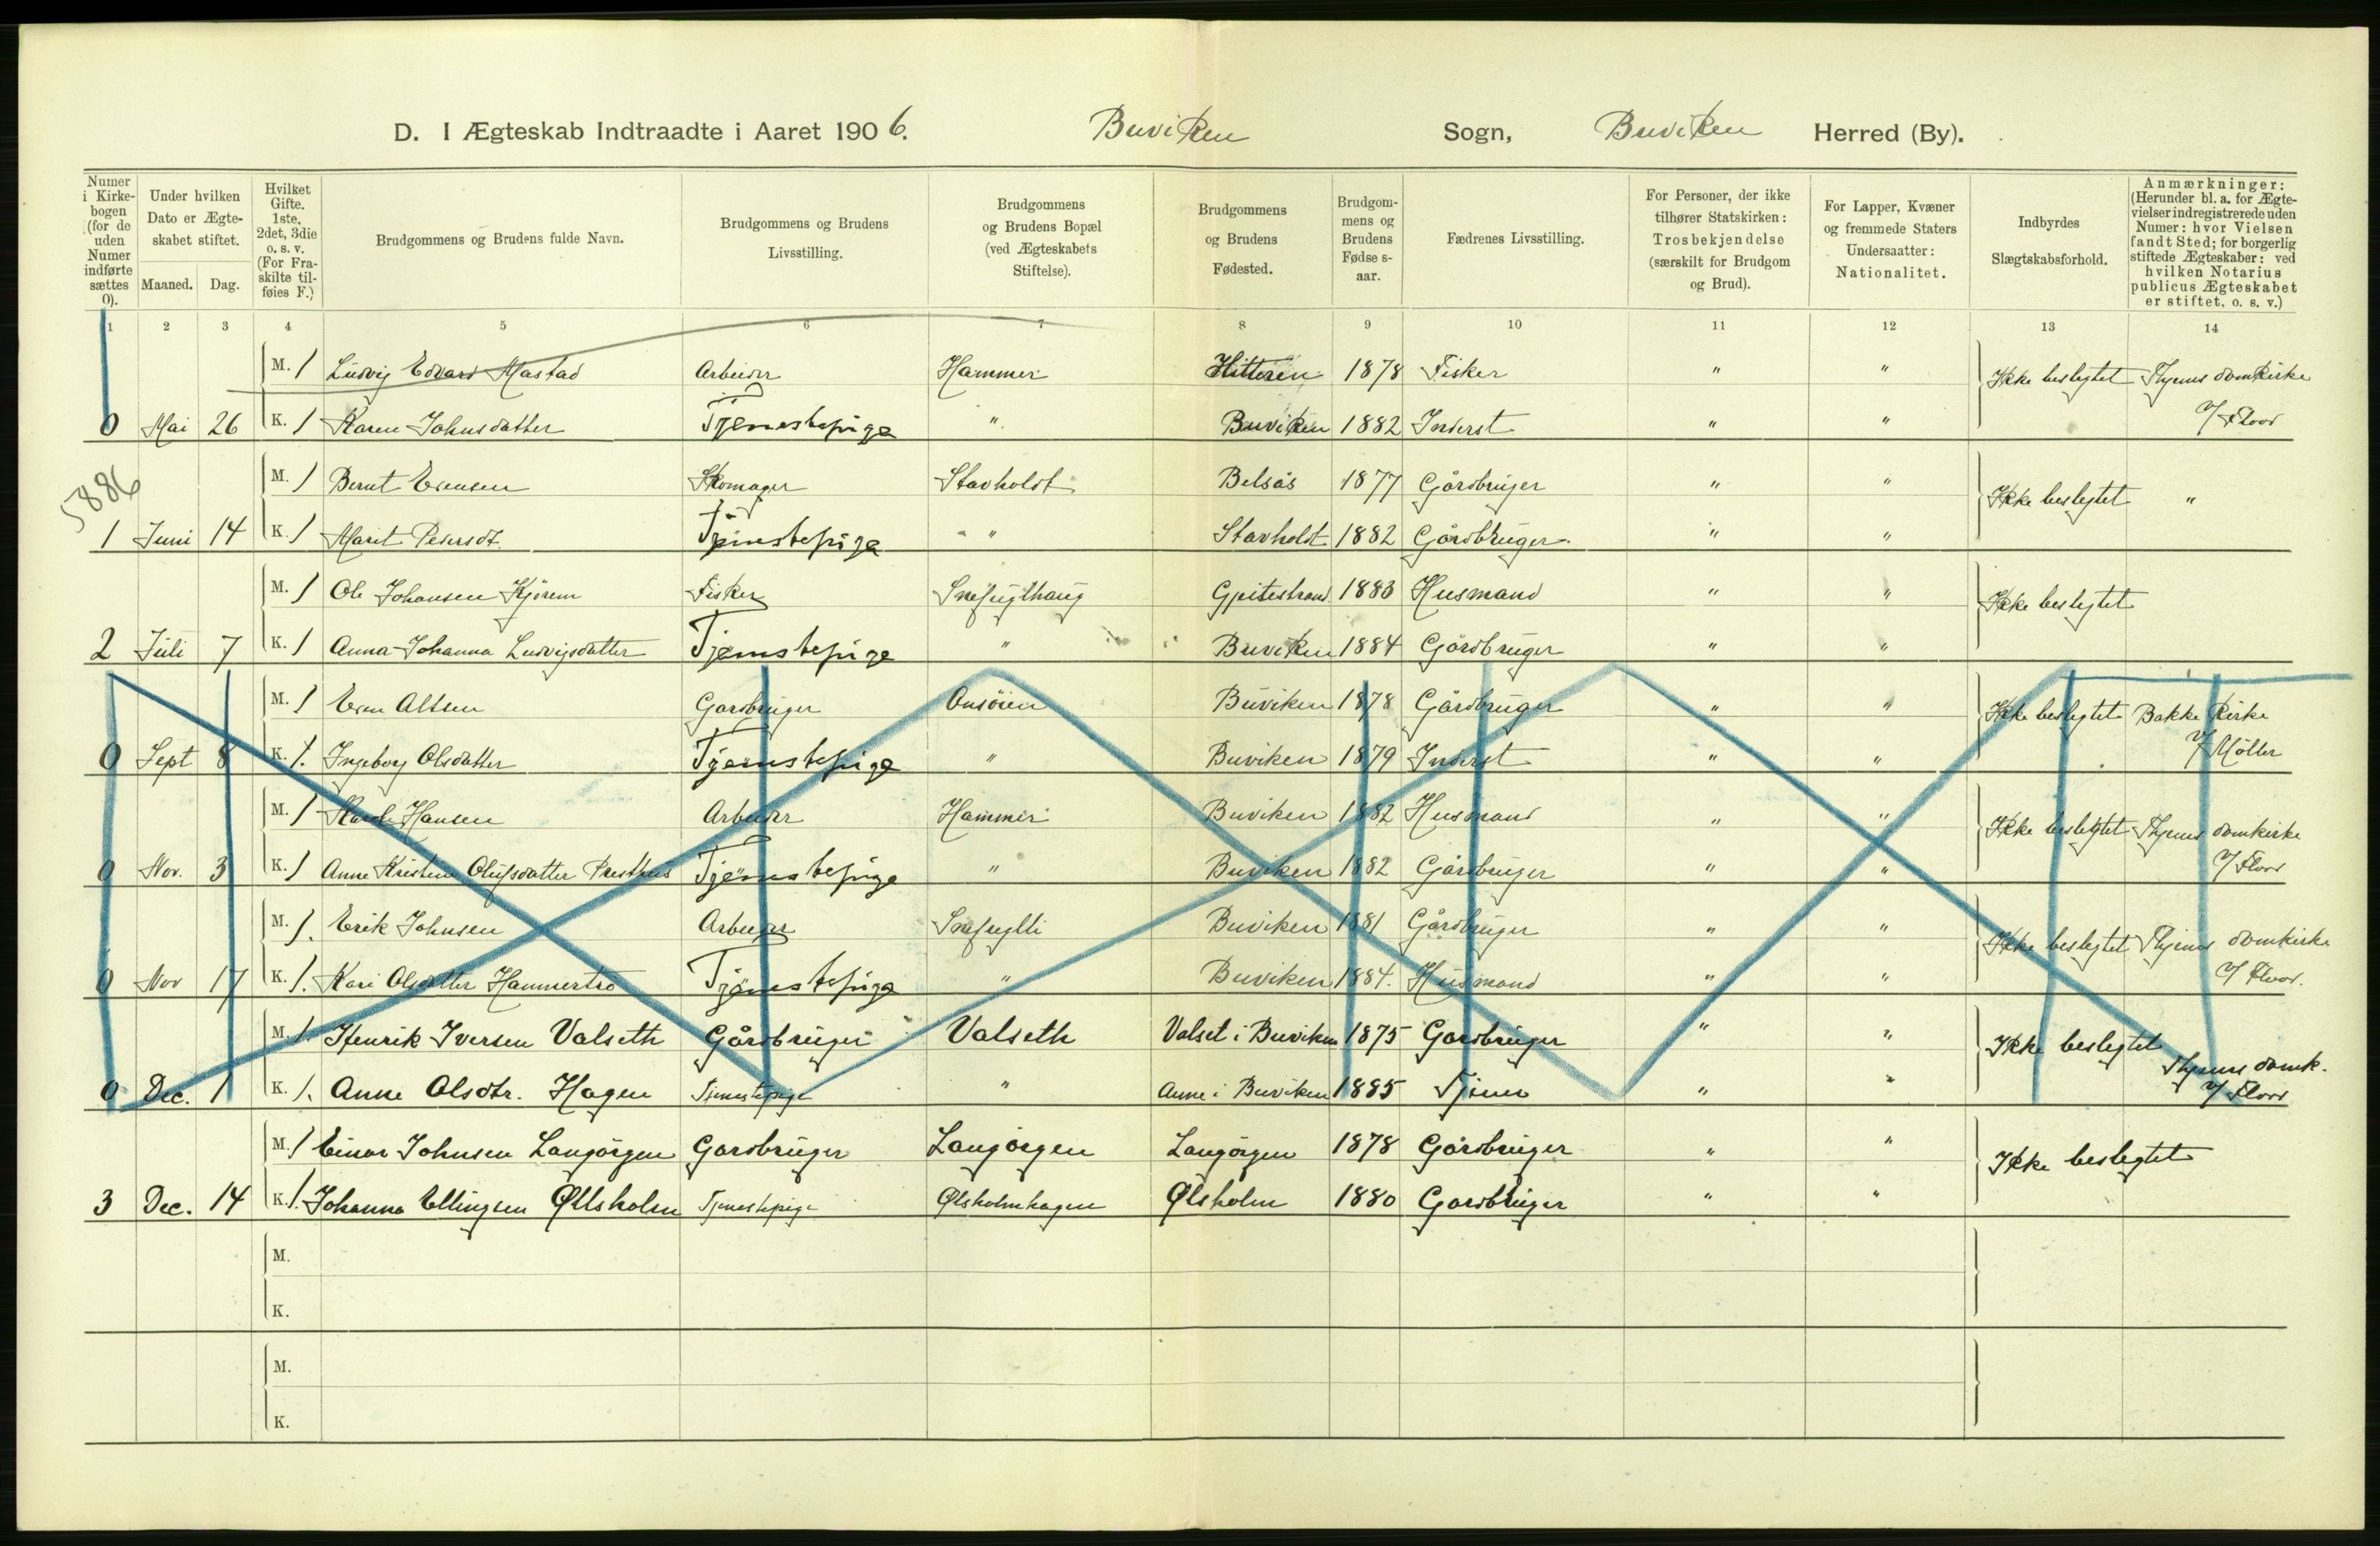 D. I Ægteskab Indtraadte i Aaret 1906. Buviken Sogn, Buviken Herred (By).
Numer i Kirkebogen (for de uden Numer indførte sættes 0).
Under hvilken Dato er Ægteskabet stiftet.
Maaned. Dag.
Hvilket Gifte. 1ste, 2det, 3die o. s. v. (For Fraskilte tilføies F.)
Brudgommens og Brudens fulde Navn.
Brudgommens og Brudens Livsstilling.
Brudgommens og Brudens Bopæl (ved Ægteskabets Stiftelse).
Brudgommens og Brudens Fødested.
Brudgommens og Brudens Fødselsaar.
Fædrenes Livsstilling.
For Personer, der ikke tilhører Statskirken: Trosbekjendelse (særskilt for Brudgom og Brud).
For Lapper, Kvæner og fremmede Staters Undersaatter: Nationalitet.
Indbyrdes Slægtskabsforhold.
Anmærkninger: (Herunder bl. a. for Ægtevielser indregistrerede uden Numer: hvor Vielsen fandt Sted; for borgerlig stiftede Ægteskaber: ved hvilken Notarius publicus Ægteskabet er stiftet, o. s. v.)
1 2 3 4 5 6 7 8 9 10 11 12 13 14
M. 1 Ludvig Edvard Mastad Arbeider Hammer Hitteren 1878 Fisker " " Ikke beslegtet Thjems domkirke
0 Mai 26 K. 1 Karen Johnsdatter Tjenestepige " Buviken 1882 Inderst " " v/ Floor
5886
M. 1 Bernt Evensen Skomager Stavholdt Belsås 1877 Gårdbruger " " Ikke beslegtet "
1 Juni 14 K. 1 Marit Pedersdt. Tjenestepige " Stavholdt 1882 Gårdbruger " "
M. 1 Ole Johansen Kjörem Fisker Snefuglhaug 1883 Husmand " " Ikke beslegtet
2 Juli 7 K. 1 Anna Johanna Ludvigsdatter Tjenestepige " Buviken 1884 Gårdbruger " "
M. 1 Even Altsen Gardbruger Onsöien Buviken 1878 Gårdbruger " " Ikke beslegtet Bakke Kirke
0 Sept 8 K. 1. Ingeborg Olsdatter Tjenestepige " Buviken 1879 Inderst " " v/ Möller
M. 1 Hansen Arbeider Hammer Buviken 1882 Husmand " " Ikke beslegtet Thjems domkirke
0 Nov. 3 K. 1 Anne Kristine Olufsdatter Presthus Tjenestepige " Buviken 1882 Gårdbruger " " v/ Floor
M. 1. Erik Johnsen Arbeider Snefugli Buviken 1881 Gårdbruger " " Ikke beslegtet Thjems domkirke
0 Nov 17 K. 1. Kari Olsdatter Hammertrö Tjenestepige " Buviken 1884. Husmand " " v/ Floor.
M. 1. Henrik Iversen Valseth Gårdbruger Valseth Valset i Buviken 1875 Gardbruger " " Ikke beslegtet
0 Dec. 1 K. 1. Anne Olsdtr. Hagen Tjenestepige " i Buviken 1885 Tjener " " Thjems domk. v/ Floor
M. 1 Einar Johnsen Langörgen Gardbruger Langörgen Langörgen 1878 Gårdbruger " " Ikke beslegtet
3 Dec. 14 K. 1. Johanna Ellingsen Øllsholm Tjenestepige Ølsholmhagen Ølsholm 1880 Gardbruger " "
M.
K.
M.
K.